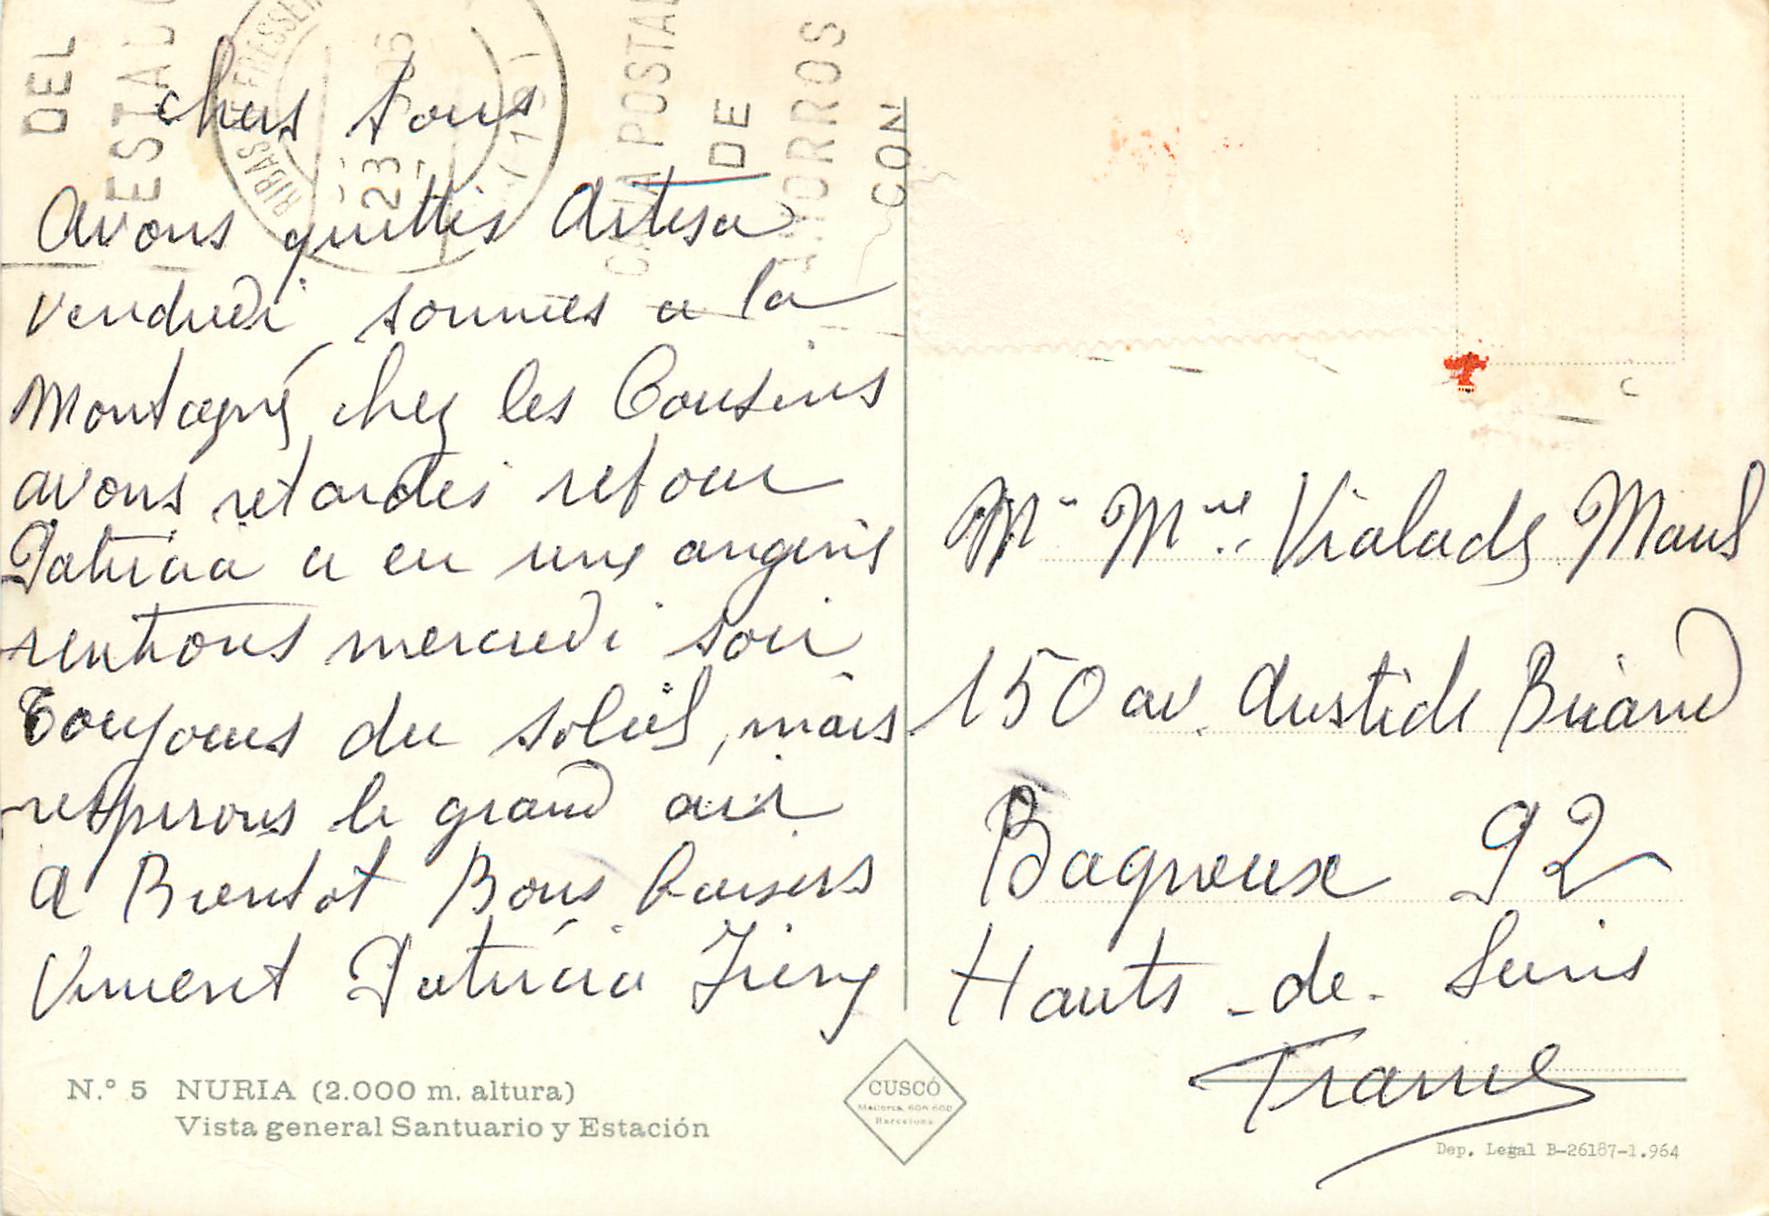 DEL
ESTAL
CAJA POSTAL
DE
AHORROS
CON
RIBAS DE FRESSER
23
chers tous
avons quittés Artesa
vendredi sommes a la
Montagne chez les Cousins
avons retardés retour
Patricia a eu une angine
rentrons mercredi soir
Toujours du soleil, mais
respirons le grand air
A Bientot Bons baisers
Vincent Patricia
N.º 5 NURIA (2.000 m. altura)
Vista general Santuario y Estación
CUSCÓ
Mallorca, 608-600
Barcelona
Mr Mme Vialade
150 av. Aristide Briand
Bagneux 92
Hauts-de-Seine
France
Dep. Legal B-26187-1.964